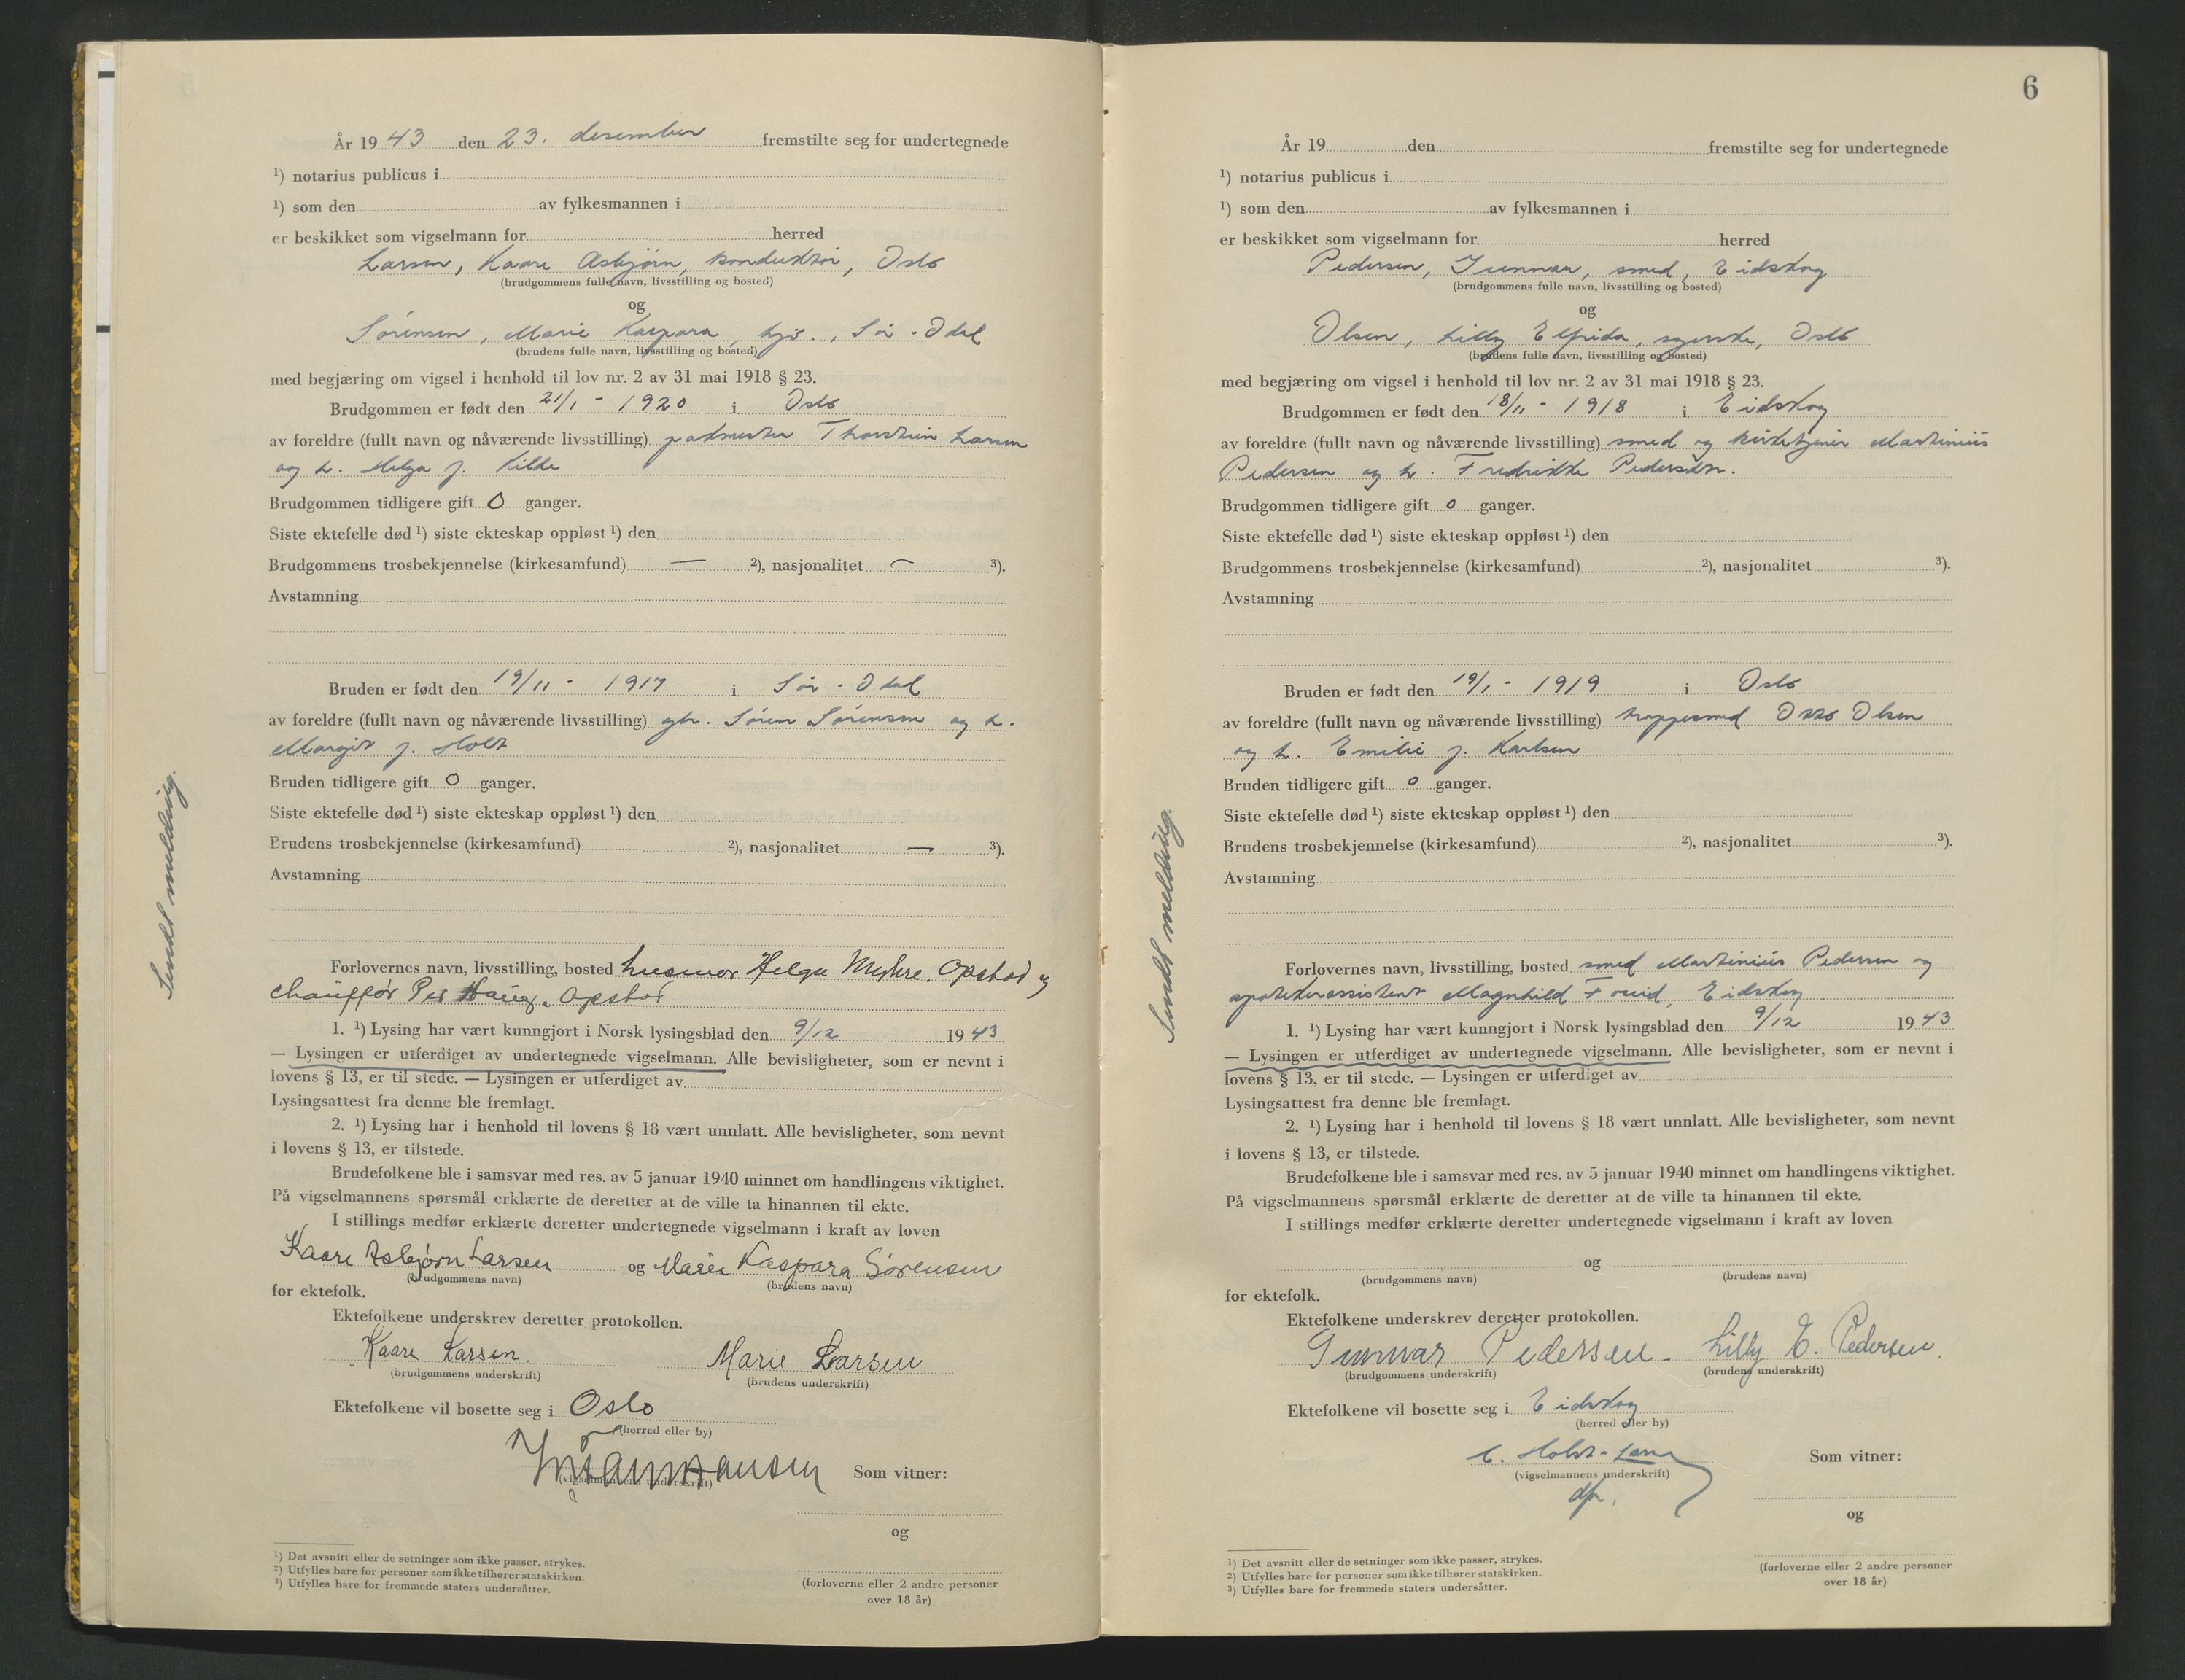 År 1943 den 23. desember fremstilte seg for undertegnede
¹) notarius publicus i
¹) som den av fylkesmannen i
er beskikket som vigselmann for herred
Larsen, Kaare Asbjørn, konduktør, Oslo
(brudgommens fulle navn, livsstilling og bosted)
og
Sørensen, Marie Kaspara, hjv., Sør-Odal
(brudens fulle navn, livsstilling og bosted)
med begjæring om vigsel i henhold til lov nr. 2 av 31 mai 1918 § 23.
Brudgommen er født den 21/1 - 1920 i Oslo
av foreldre (fullt navn og nåværende livsstilling) pakmester Thorstein Larsen
og h. Helga f. Kilde
Brudgommen tidligere gift 0 ganger.
Siste ektefelle død ¹) siste ekteskap oppløst ¹) den
Brudgommens trosbekjennelse (kirkesamfund) — ²), nasjonalitet — ³).
Avstamning
Bruden er født den 19/11 - 1917 i Sør-Odal
av foreldre (fullt navn og nåværende livsstilling) gbr. Søren Sørensen og h.
Margit f. Holt
Bruden tidligere gift 0 ganger.
Siste ektefelle død ¹) siste ekteskap oppløst ¹) den
Brudens trosbekjennelse (kirkesamfund) ²), nasjonalitet — ³).
Avstamning
Forlovernes navn, livsstilling, bosted husmor Helga Myhre. Opstad og
chauffør Per Haug. Opstad
1. ¹) Lysing har vært kunngjort i Norsk lysingsblad den 9/12 1943
— Lysingen er utferdiget av undertegnede vigselmann. Alle bevisligheter, som er nevnt i
lovens § 13, er til stede. — Lysingen er utferdiget av
Lysingsattest fra denne ble fremlagt.
2. ¹) Lysing har i henhold til lovens § 18 vært unnlatt. Alle bevisligheter, som nevnt
i lovens § 13, er tilstede.
Brudefolkene ble i samsvar med res. av 5 januar 1940 minnet om handlingens viktighet.
På vigselmannens spørsmål erklærte de deretter at de ville ta hinannen til ekte.
I stillings medfør erklærte deretter undertegnede vigselmann i kraft av loven
Kaare Asbjørn Larsen og Marie Kaspara Sørensen
(brudgommens navn) (brudens navn)
for ektefolk.
Ektefolkene underskrev deretter protokollen.
Kaare Larsen. Marie Larsen
(brudgommens underskrift) (brudens underskrift)
Ektefolkene vil bosette seg i Oslo
(herred eller by)
(vigselmannens underskrift) Som vitner:
og
(forloverne eller 2 andre personer
over 18 år)
¹) Det avsnitt eller de setninger som ikke passer, strykes.
²) Utfylles bare for personer som ikke tilhører statskirken.
³) Utfylles bare for fremmede staters undersåtter.
Sendt melding.
6
År 19 den fremstilte seg for undertegnede
¹) notarius publicus i
¹) som den av fylkesmannen i
er beskikket som vigselmann for herred
Pedersen, Gunnar, smed, Eidskog
(brudgommens fulle navn, livsstilling og bosted)
og
Olsen, Lilly Elfrida, syerske, Oslo
(brudens fulle navn, livsstilling og bosted)
med begjæring om vigsel i henhold til lov nr. 2 av 31 mai 1918 § 23.
Brudgommen er født den 18/11 - 1918 i Eidskog
av foreldre (fullt navn og nåværende livsstilling) smed og kirketjener Martinius
Pedersen og h. Fredrikke Pedersdtr.
Brudgommen tidligere gift 0 ganger.
Siste ektefelle død ¹) siste ekteskap oppløst ¹) den
Brudgommens trosbekjennelse (kirkesamfund) ²), nasjonalitet ³).
Avstamning
Bruden er født den 19/1 - 1919 i Oslo
av foreldre (fullt navn og nåværende livsstilling) trappesmed Otto Olsen
og h. Emilie f. Karlsen
Bruden tidligere gift 0 ganger.
Siste ektefelle død ¹) siste ekteskap oppløst ¹) den
Brudens trosbekjennelse (kirkesamfund) ²), nasjonalitet ³).
Avstamning
Forlovernes navn, livsstilling, bosted smed Martinius Pedersen og
apotekerassistent Magnhild Eidskog.
1. ¹) Lysing har vært kunngjort i Norsk lysingsblad den 9/12 1943
— Lysingen er utferdiget av undertegnede vigselmann. Alle bevisligheter, som er nevnt i
lovens § 13, er til stede. — Lysingen er utferdiget av
Lysingsattest fra denne ble fremlagt.
2. ¹) Lysing har i henhold til lovens § 18 vært unnlatt. Alle bevisligheter, som nevnt
i lovens § 13, er tilstede.
Brudefolkene ble i samsvar med res. av 5 januar 1940 minnet om handlingens viktighet.
På vigselmannens spørsmål erklærte de deretter at de ville ta hinannen til ekte.
I stillings medfør erklærte deretter undertegnede vigselmann i kraft av loven
og
(brudgommens navn) (brudens navn)
for ektefolk.
Ektefolkene underskrev deretter protokollen.
Gunnar Pedersen. Lilly E. Pedersen.
(brudgommens underskrift) (brudens underskrift)
Ektefolkene vil bosette seg i Eidskog
(herred eller by)
Som vitner:
(vigselmannens underskrift)
dfm.
og
(forloverne eller 2 andre personer
over 18 år)
¹) Det avsnitt eller de setninger som ikke passer, strykes.
²) Utfylles bare for personer som ikke tilhører statskirken.
³) Utfylles bare for fremmede staters undersåtter.
Sendt melding.